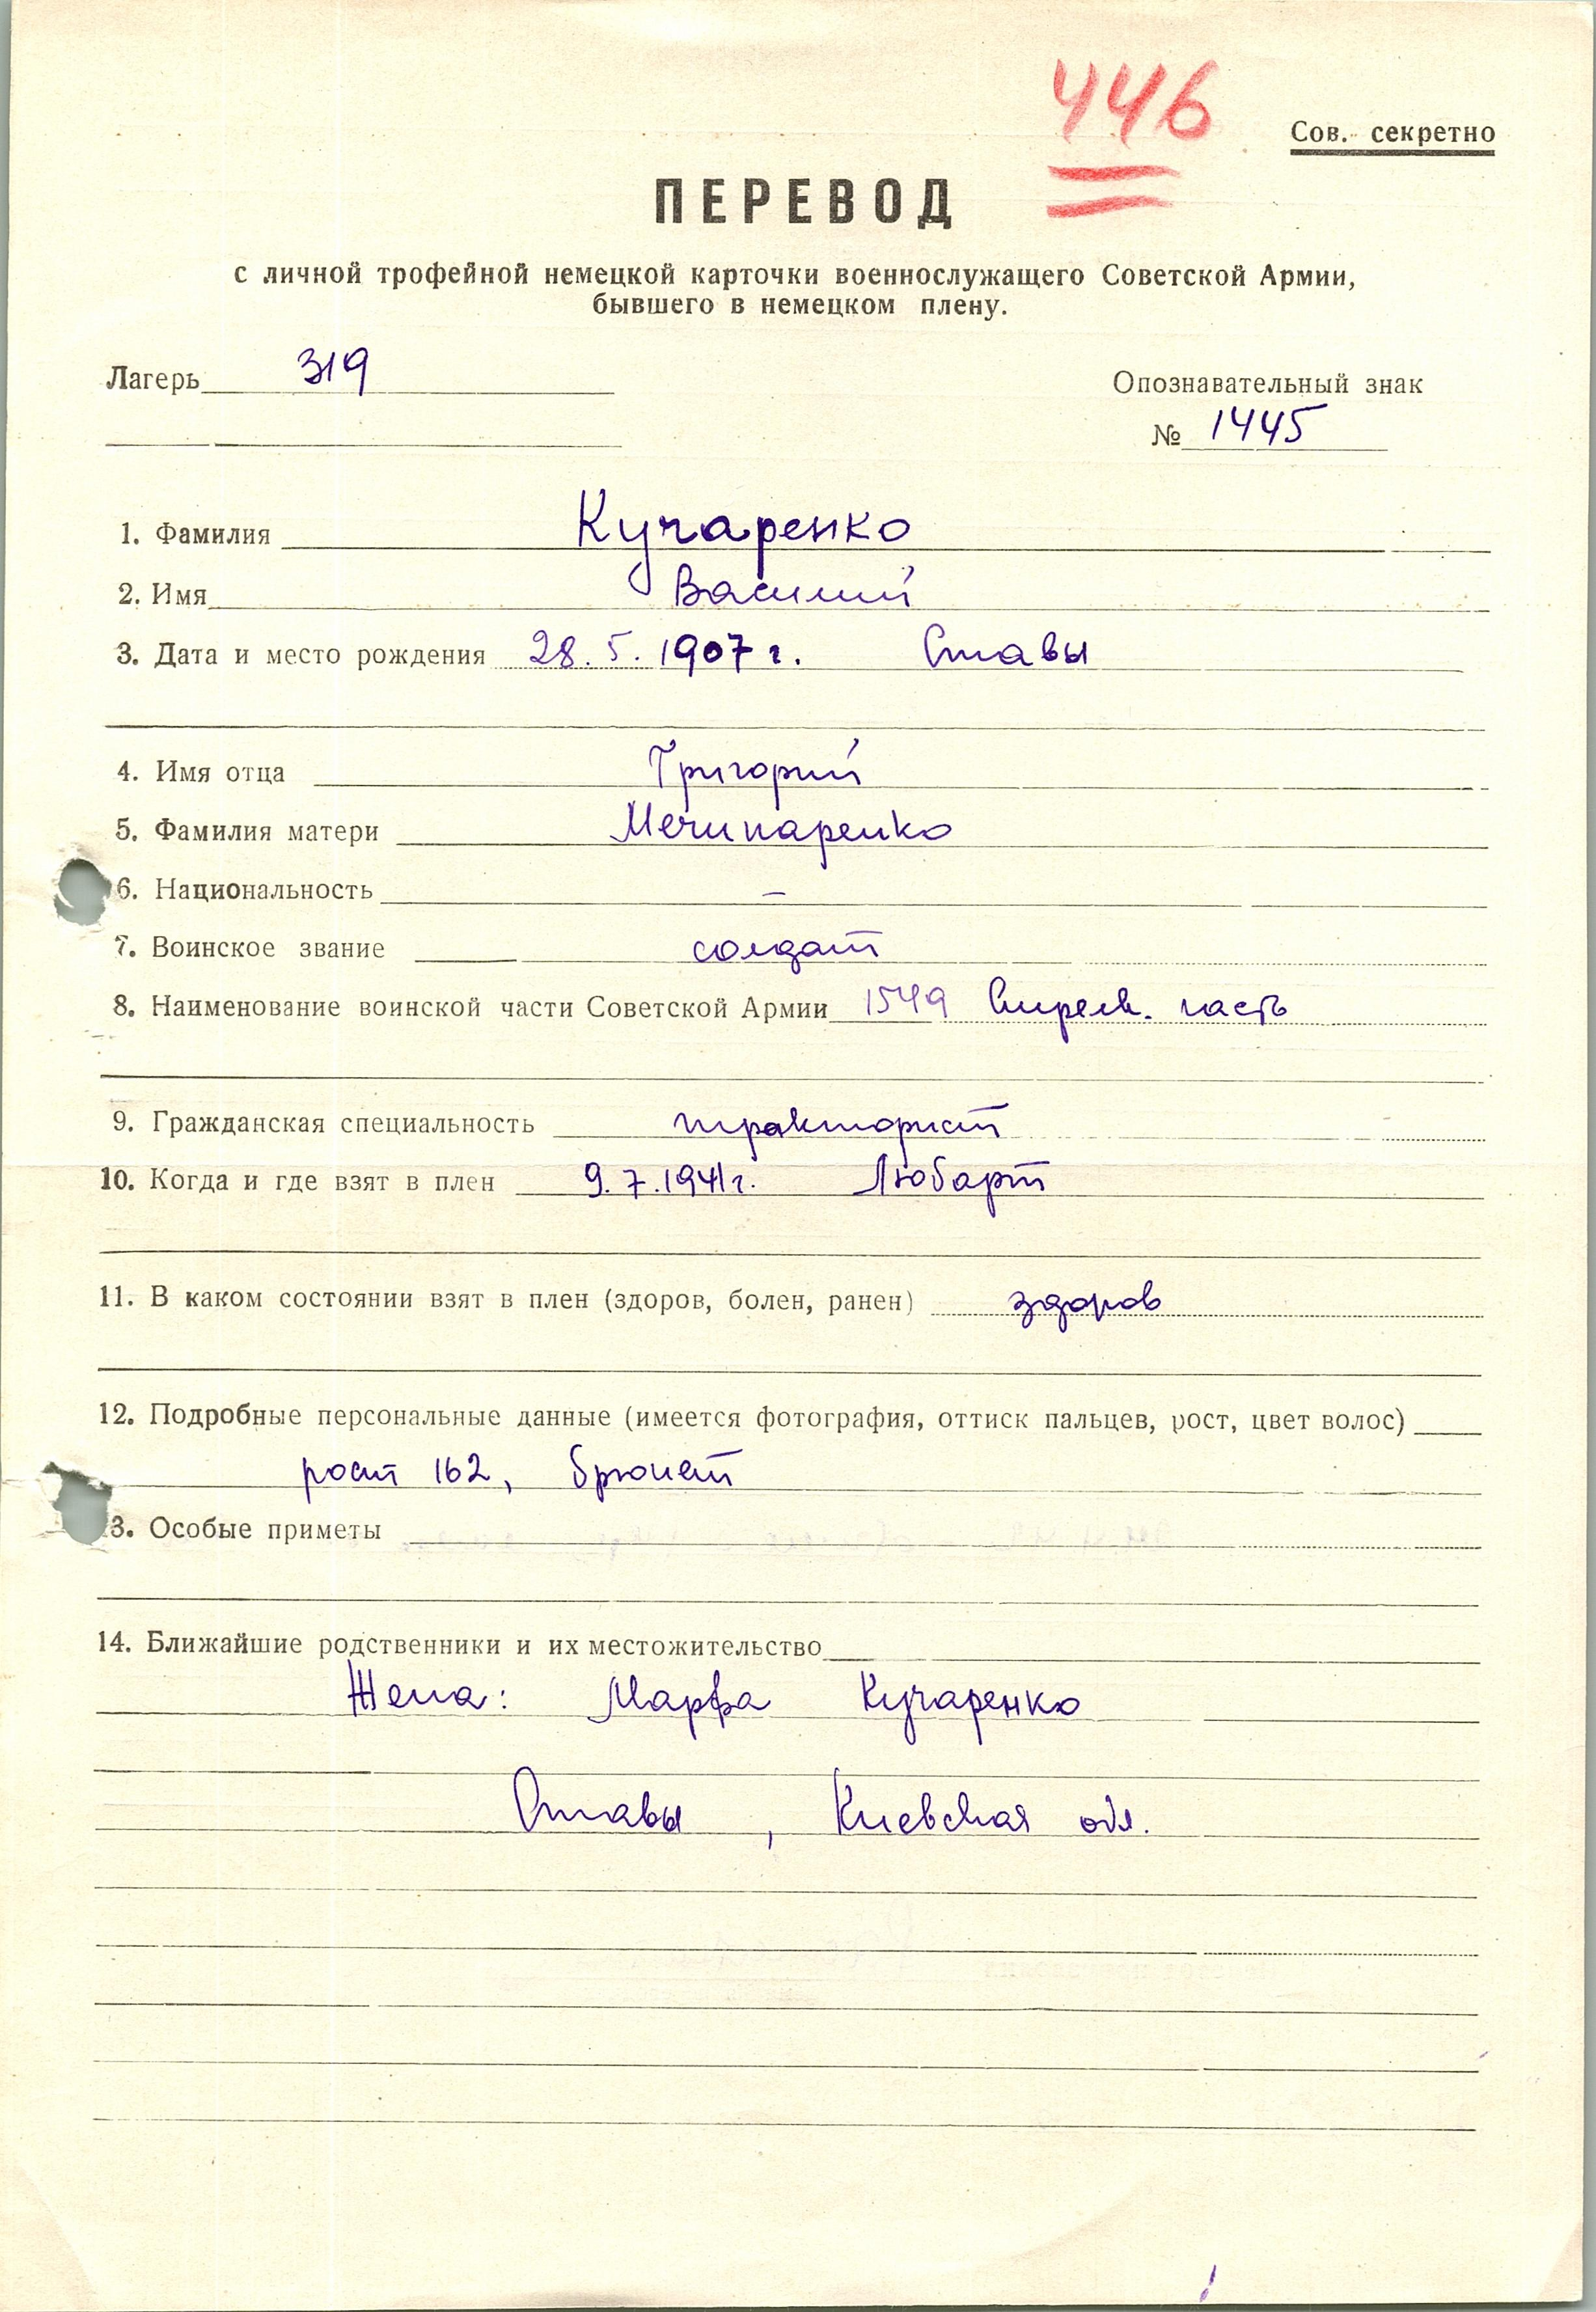 446
Сов. секретно
ПЕРЕВОД
с личной трофейной немецкой карточки военнослужащего Советской Армии,
бывшего в немецком плену.
Лагерь 319
Опознавательный знак
№ 1445
1. Фамилия Кучаренко
2. Имя Василий
3. Дата и место рождения 28.5.1907 г. Ставы
4. Имя отца Григорий
5. Фамилия матери Мечипаренко
6. Национальность –
7. Воинское звание солдат
8. Наименование воинской части Советской Армии 1549 Стрелк. часть
9. Гражданская специальность тракторист
10. Когда и где взят в плен 9.7.1941г. Любарт
11. В каком состоянии взят в плен (здоров, болен, ранен) здоров
12. Подробные персональные данные (имеется фотография, оттиск пальцев, рост, цвет волос)
рост 162, брюнет
3. Особые приметы
14. Ближайшие родственники и их местожительство
Жена: Марфа Кучаренко
Ставы, Киевская обл.